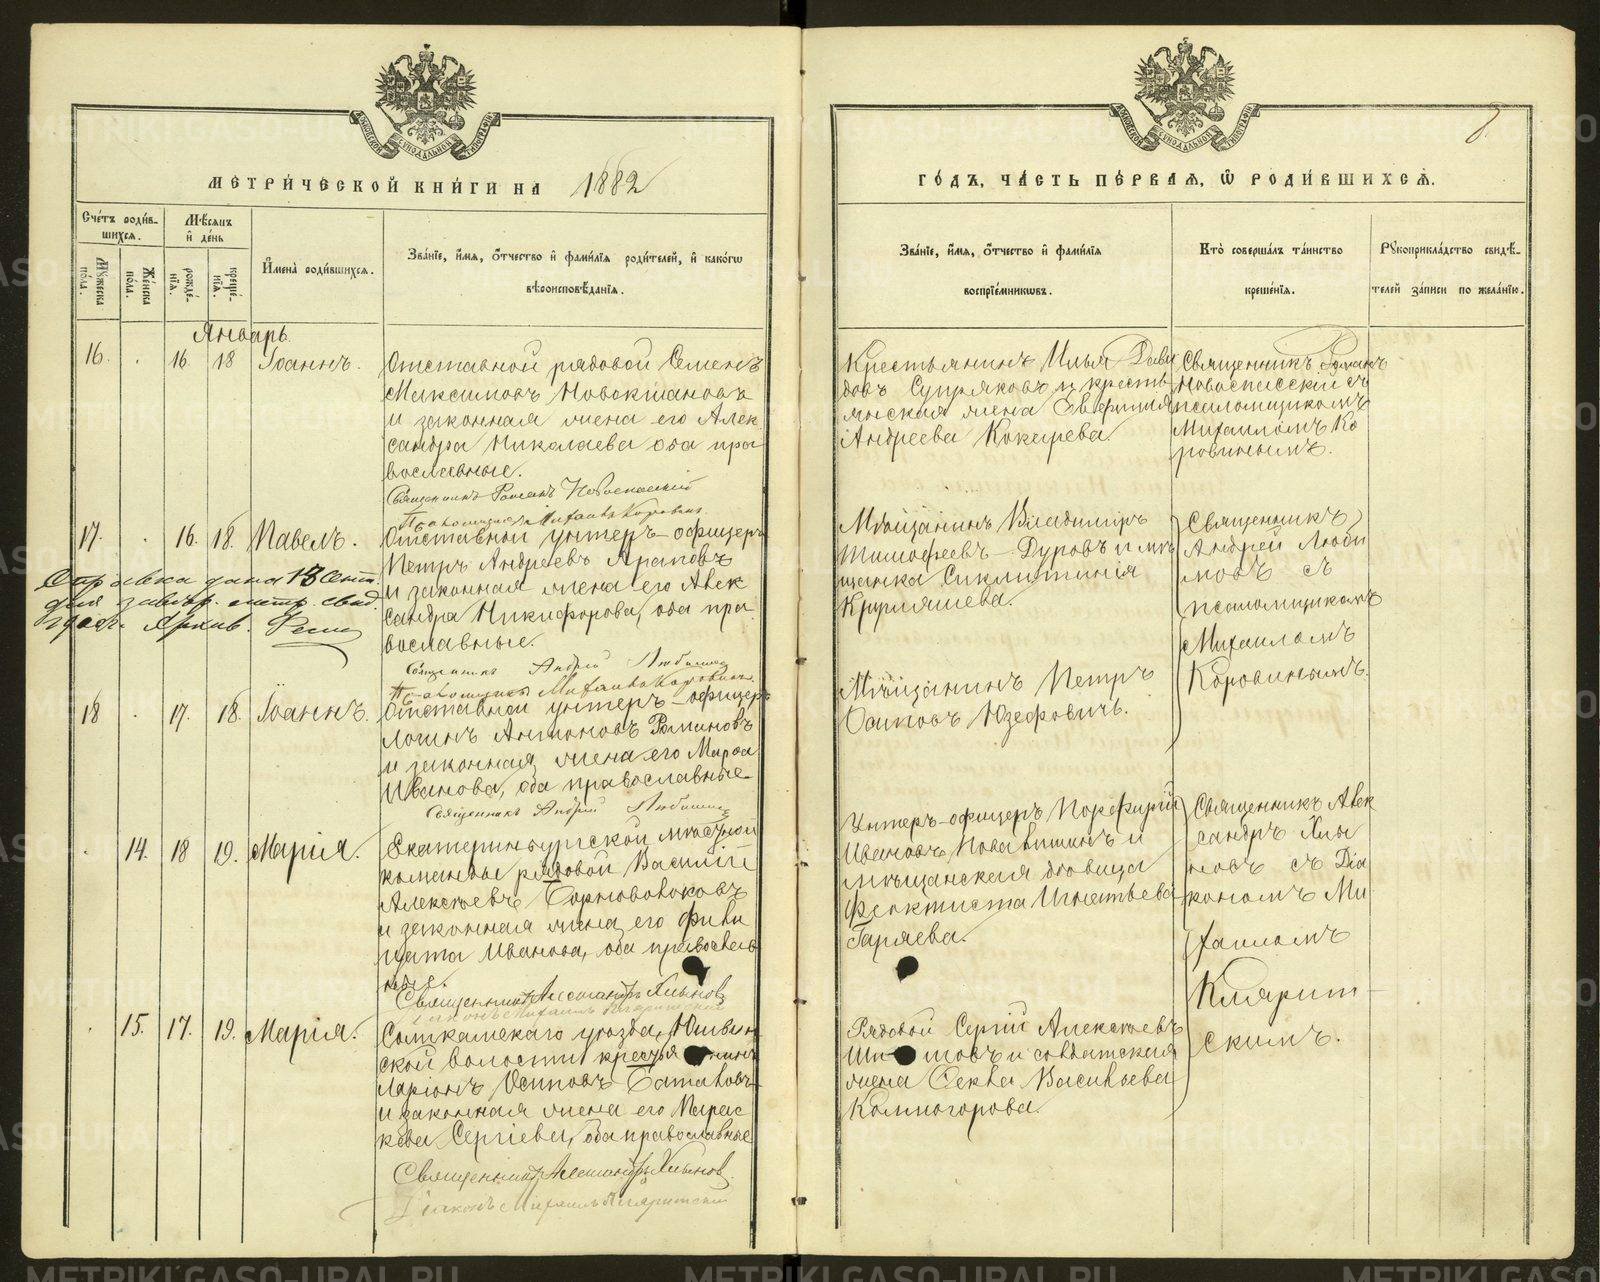 МЕТРИ́ЧЕСКОЙ КНИ́ГИ НА 1882
ГО́ДЪ, ЧА́СТЬ ПЕ́РВАЯ, Ѡ РОДИ́ВШИХСЯ.
8.
Сче́тъ роди́в-
шихся.
Мѣ́сяцъ
и де́нь
Мꙋжеска
по́ла.
Же́нска
по́ла.
рожде́-
нїя.
креще́-
нїя.
Имена̀ роди́вшихся.
Зва́нїе, и́мя, ѻ҆́тчество и фами́лїя роди́телей, и како́гѡ
вѣроисповѣ́данїя.
Зва́нїе, и́мя, ѻ҆́тчество и фами́лїя
воспрїе́мникѡвъ.
Кто̀ соверша́лъ та́инство
креще́нїя.
Рꙋкоприкла́дство свидѣ́-
телей за́писи по жела́нїю.
Январь
16. . 16. 18 Іоаннъ.
Отставной рядовой Семенъ
Максимовъ Новокшановъ
и законная жена его Алек
сандра Николаева оба пра
вославные.
Священникъ Романъ Новоспасскій
Псаломщикъ Михаилъ Коровинъ
Крестьянинъ Илья Дави
довъ Супряковъ и кресть
янская жена Евфимия
Андреева Кокарева.
Священникъ Романъ
Новоспасскій съ
псаломщикомъ
Михаиломъ Ко
ровинымъ.
17. . 16. 18. Павелъ.
Отставной унтеръ-офицеръ
Петръ Андреевъ Араповъ
и законная жена его Алек
сандра Никифорова, оба пра
вославные.
Священникъ Андрей Любимовъ
Псаломщикъ Михаилъ Коровинъ
Справка дана 13 Сент.
для завѣр. метр. свид.
Архив.
Мѣщанинъ Владимиръ
Тимофеевъ Дуровъ и мѣ
щанка Сиклитинія
Кругляшева.
Священникъ
Андрей Люби
мовъ съ
псаломщикомъ
Михаиломъ
Коровинымъ.
18 . 17. 18. Іоаннъ.
Отставной унтеръ-офицеръ
Логинъ Антоновъ Романовъ
и законная жена его Марѳа
Иванова, оба православные
Священникъ Андрей Любимовъ
Мѣщанинъ Петръ
Осиповъ Юзефовичъ.
. 14. 18 19. Марія.
Екатеринбургской мѣстной
команды рядовой Василій
Алексѣевъ
и законная жена его
Иванова, оба православ
ные.
Священникъ Александръ Хлыновъ
Діаконъ Михаилъ Кляритскій
Унтеръ-офицеръ Порфирій
Ивановъ и
мѣщанская вдовица
Феоктиста Игнатьева
Гаряева.
Священникъ Алек
сандръ Хлы
новъ съ Діа
кономъ Ми
хаиломъ
Клярит-
скимъ.
. 15. 17. 19. Марія.
Соликамскаго уѣзда,
ской волости крестья нинъ
Ларіонъ Осиповъ
и законная жена его Парас
кева Сергіева, оба православные
Священникъ Александръ Хлыновъ.
Діаконъ Михаилъ Кляритскій
Рядовой Сергій Алексѣевъ
и солдатская
жена Ѳекла Васильева
Колмогорова.
METRIKI.GASO-URAL.RU